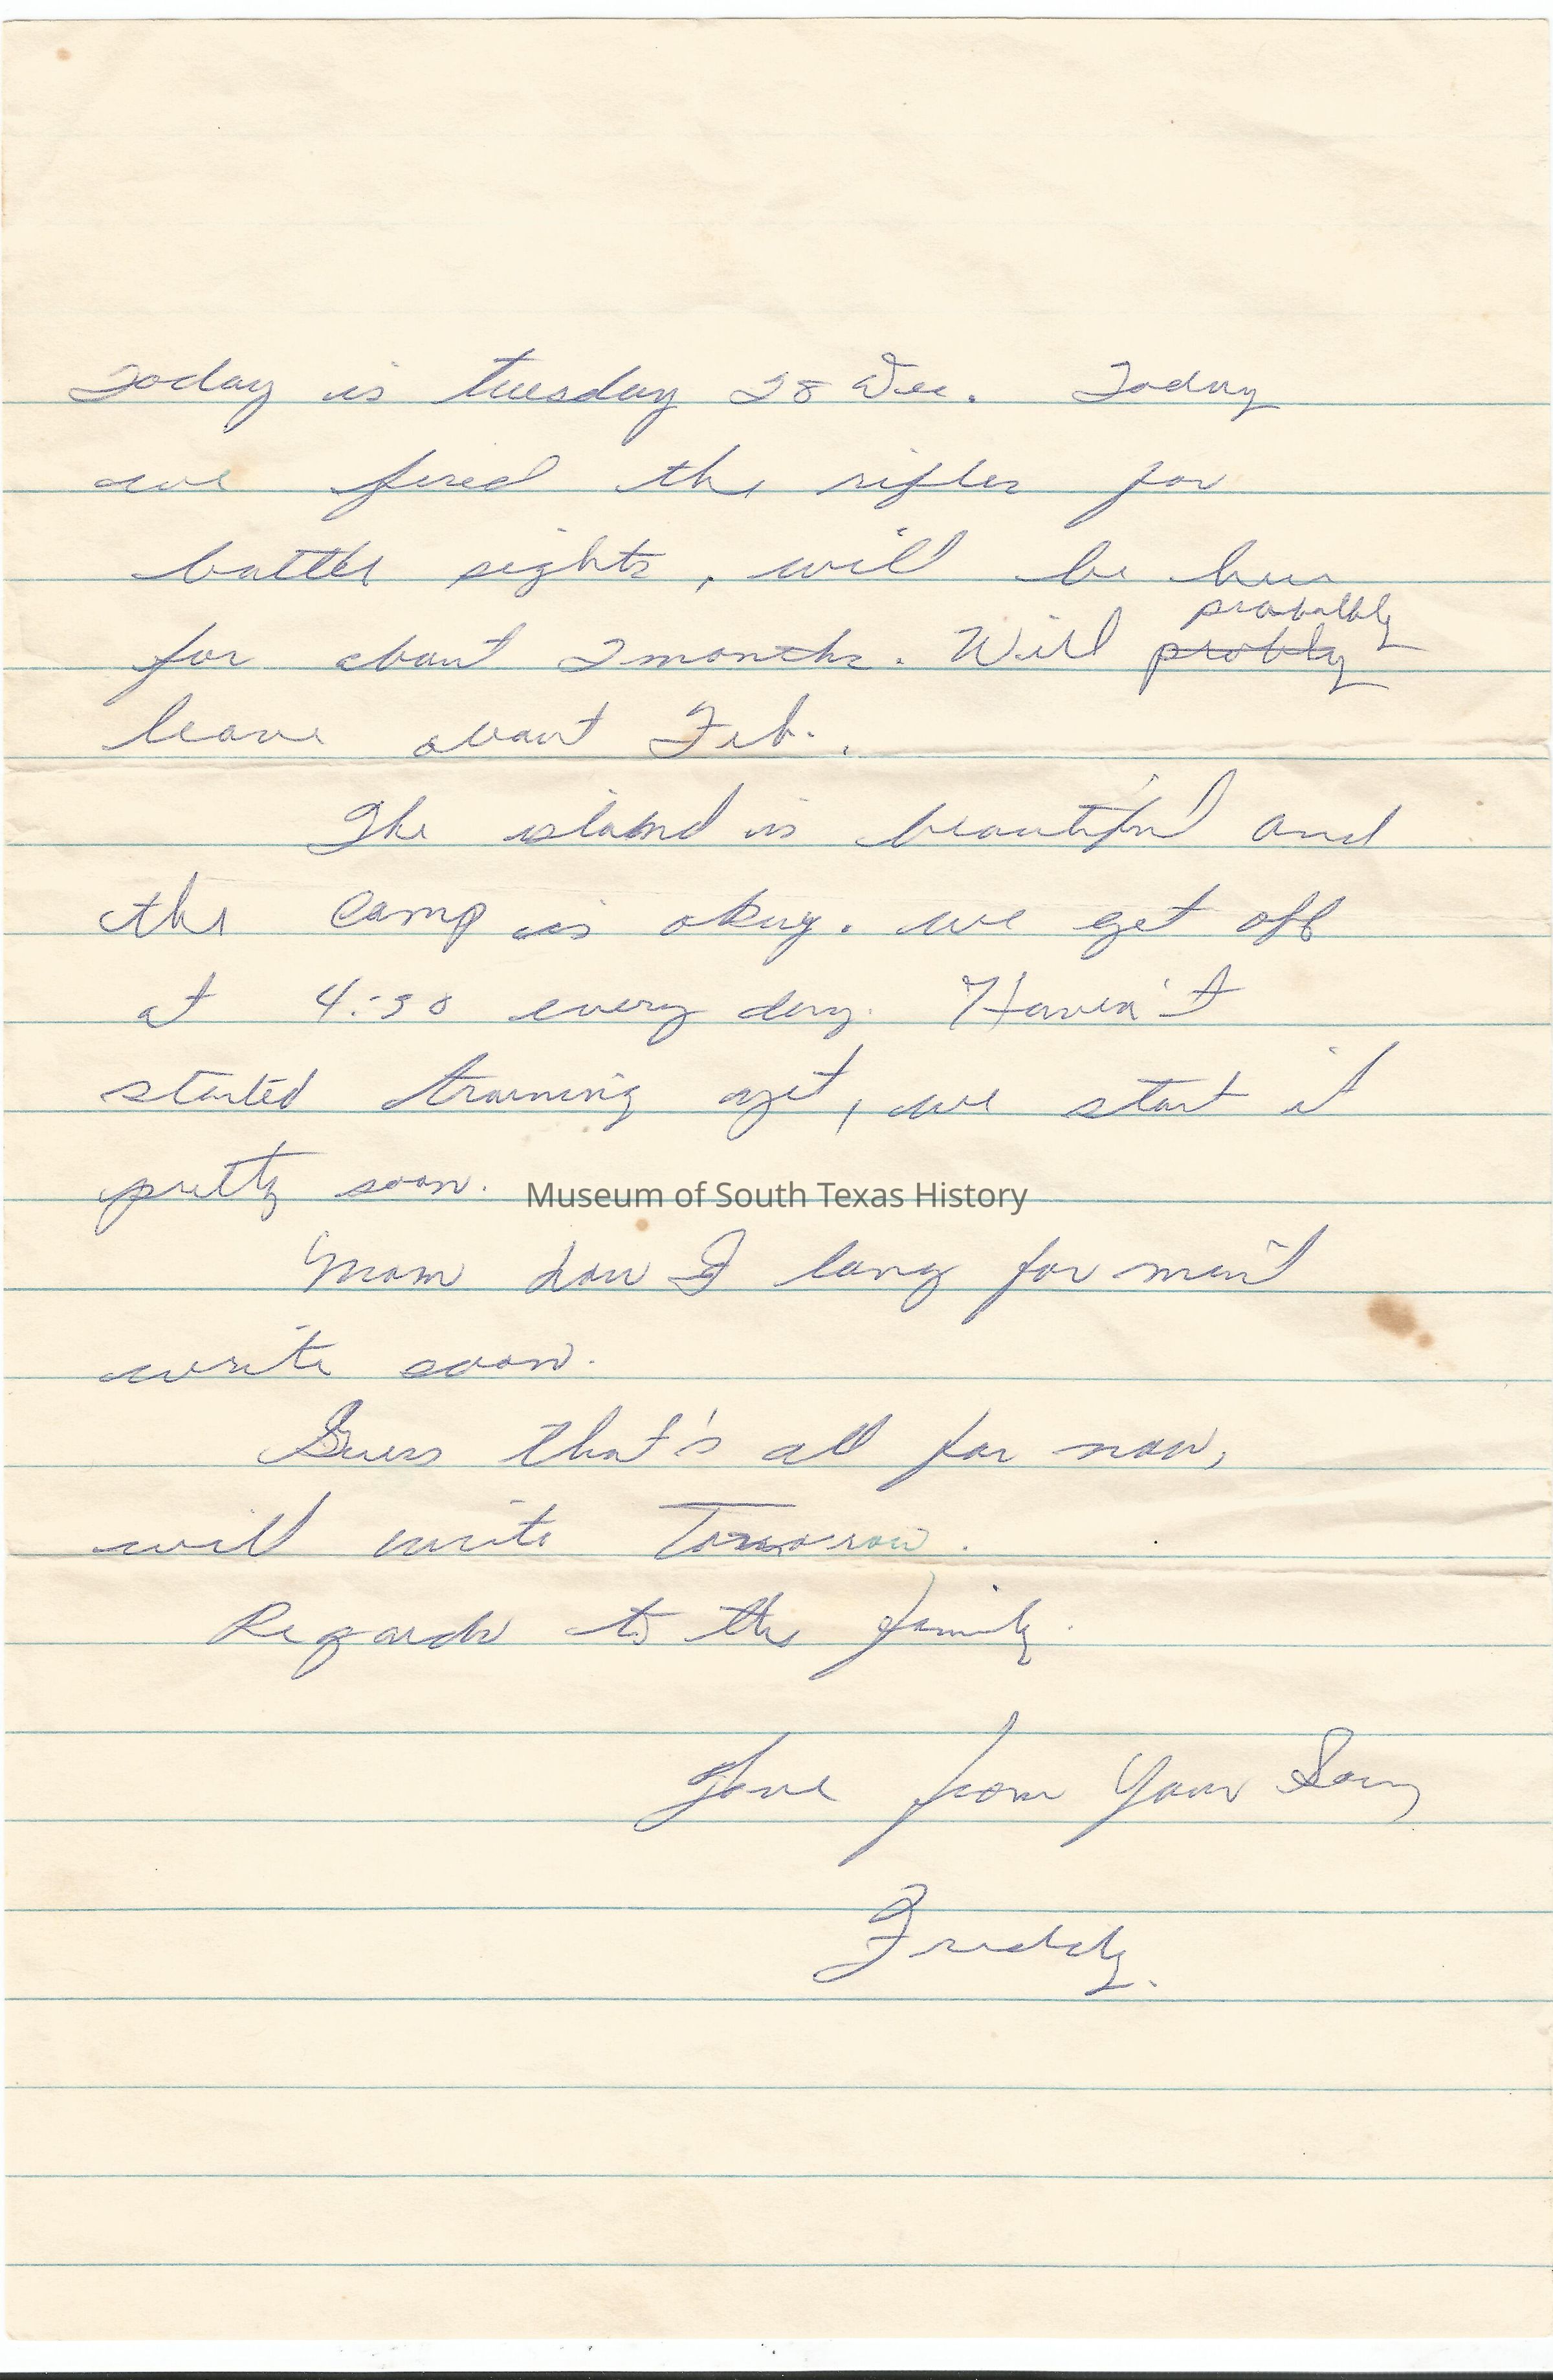 Today is tuesday 28 Dec. Today
we fired the rifles for
battle sights, will be here
for about 2 months. Will probly probablly
leave about Feb..
The island is beautiful and
the camp is okay. we get off
at 4:30 every day. Haven't
started training yet, we start it
pretty soon.
Museum of South Texas History
Mom how I long for mail
write soon.
Guess that's all for now,
will write Tomorrow.
Regards to the family.
Love from Your Son,
Freddy.